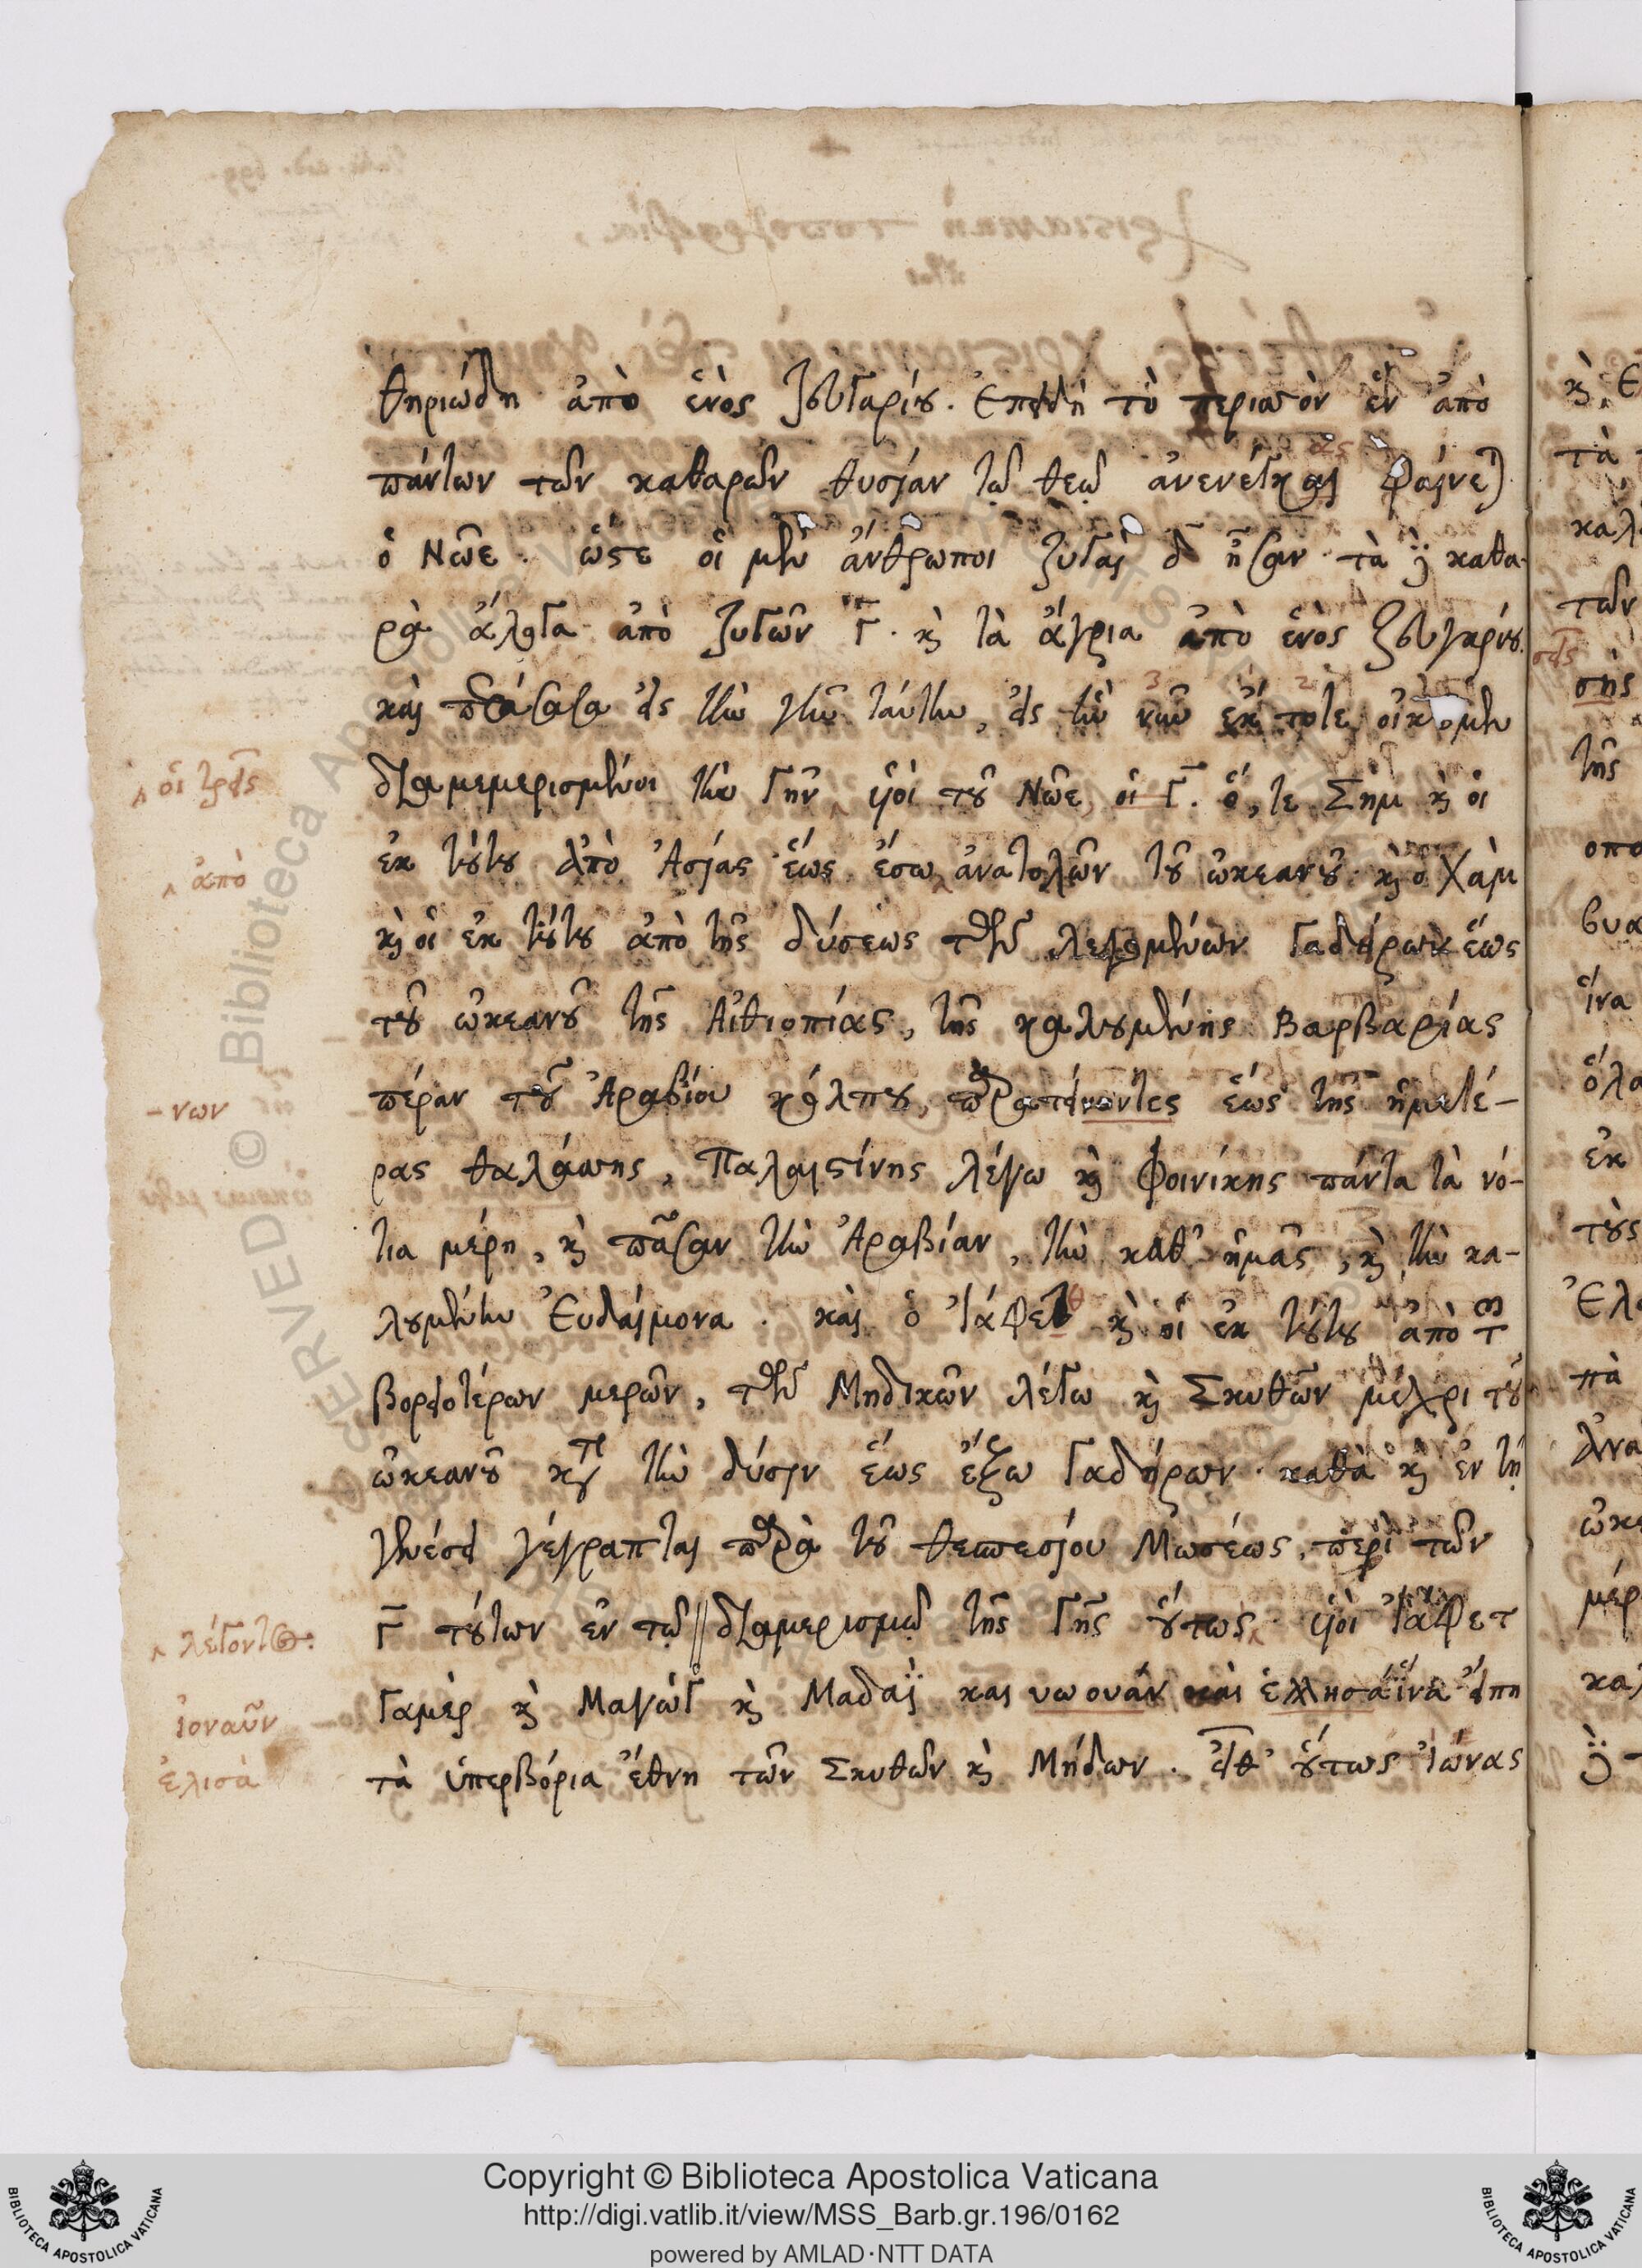 θηριώδη ἀπὸ ἑνὸς ζευγαρίου. Ἐπειδὴ τὸ περισσὸν ἓν ἀπὸ
πάντων τῶν καθαρῶν θυσίαν τῷ θεῷ ἀνενέγκας φαίνεται
ὁ Νῶε. ὥστε οἱ μὲν ἄνθρωποι ζυγαὶ δ̄ ἦσαν. τὰ δὲ καθα-
ρὰ ἄλογα ἀπὸ ζυγῶν γ̄. καὶ τὰ ἄγρια ἀπὸ ἑνὸς ζευγαρίου.
καὶ περάσασα εἰς τὴν γῆν ταύτην, εἰς ἣν νῦν ἐκ τότε οἰκοῦμεν
οἱ τρεῖς
διαμεμερισμένοι τὴν γῆν υἱοὶ τοῦ Νῶε οἱ γ̄. ὅ, τε Σὴμ καὶ οἱ
ἀπὸ
ἐκ τούτου ἀπὸ Ἀσίας ἕως ἔσω ἀνατολῶν τοῦ ὠκεανοῦ. καὶ ὁ Χὰμ
καὶ οἱ ἐκ τούτου ἀπὸ τῆς δύσεως τῶν λεγομένων Γαδείρων ἕως
τοῦ ὠκεανοῦ τῆς Αἰθιοπίας, τῆς καλουμένης Βαρβαρίας
-νων
πέραν τοῦ Ἀραβίου κόλπου, παρατείνοντες ἕως τῆς ἡμετέ-
ρας θαλάσσης, Παλαιστίνης λέγω καὶ Φοινίκης πάντα τὰ νό-
τια μέρη, καὶ πᾶσαν τὴν Ἀραβίαν, τὴν καθ' ἡμᾶς, καὶ τὴν κα-
λουμένην Εὐδαίμονα. καὶ ὁ Ἰάφεθ καὶ οἱ ἐκ τούτου ἀπὸ τῶν
βορειοτέρων μερῶν, τῶν Μηδικῶν λέγω καὶ Σκυθῶν μέχρι τοῦ
ὠκεανοῦ κατὰ τὴν δύσιν ἕως ἔξω Γαδήρων. καθὰ καὶ ἐν τῇ
γενέσει γέγραπται παρὰ τοῦ θεσπεσίου Μωσέως, περὶ τῶν
λέγοντος.
γ̄ τούτων ἐν τῷ // διαμερισμῷ τῆς γῆς οὕτως. υἱοὶ Ἰάφετ
ἰοναῦν
Γαμὲρ καὶ Μαγὼγ καὶ Μαδαῒ και υωουάν καὶ ἑλλησάϊνα εἴπῃ
ἐλισὰ
τὰ ὑπερβόρια ἔθνη τῶν Σκυθῶν καὶ Μήδων. εἶθ' οὕτως Ἰώνας
Copyright © Biblioteca Apostolica Vaticana
http://digi.vatlib.it/view/MSS_Barb.gr.196/0162
powered by AMLAD·NTT DATA
BIBLIOTECA APOSTOLICA VATICANA
BIBLIOTECA APOSTOLICA VATICANA